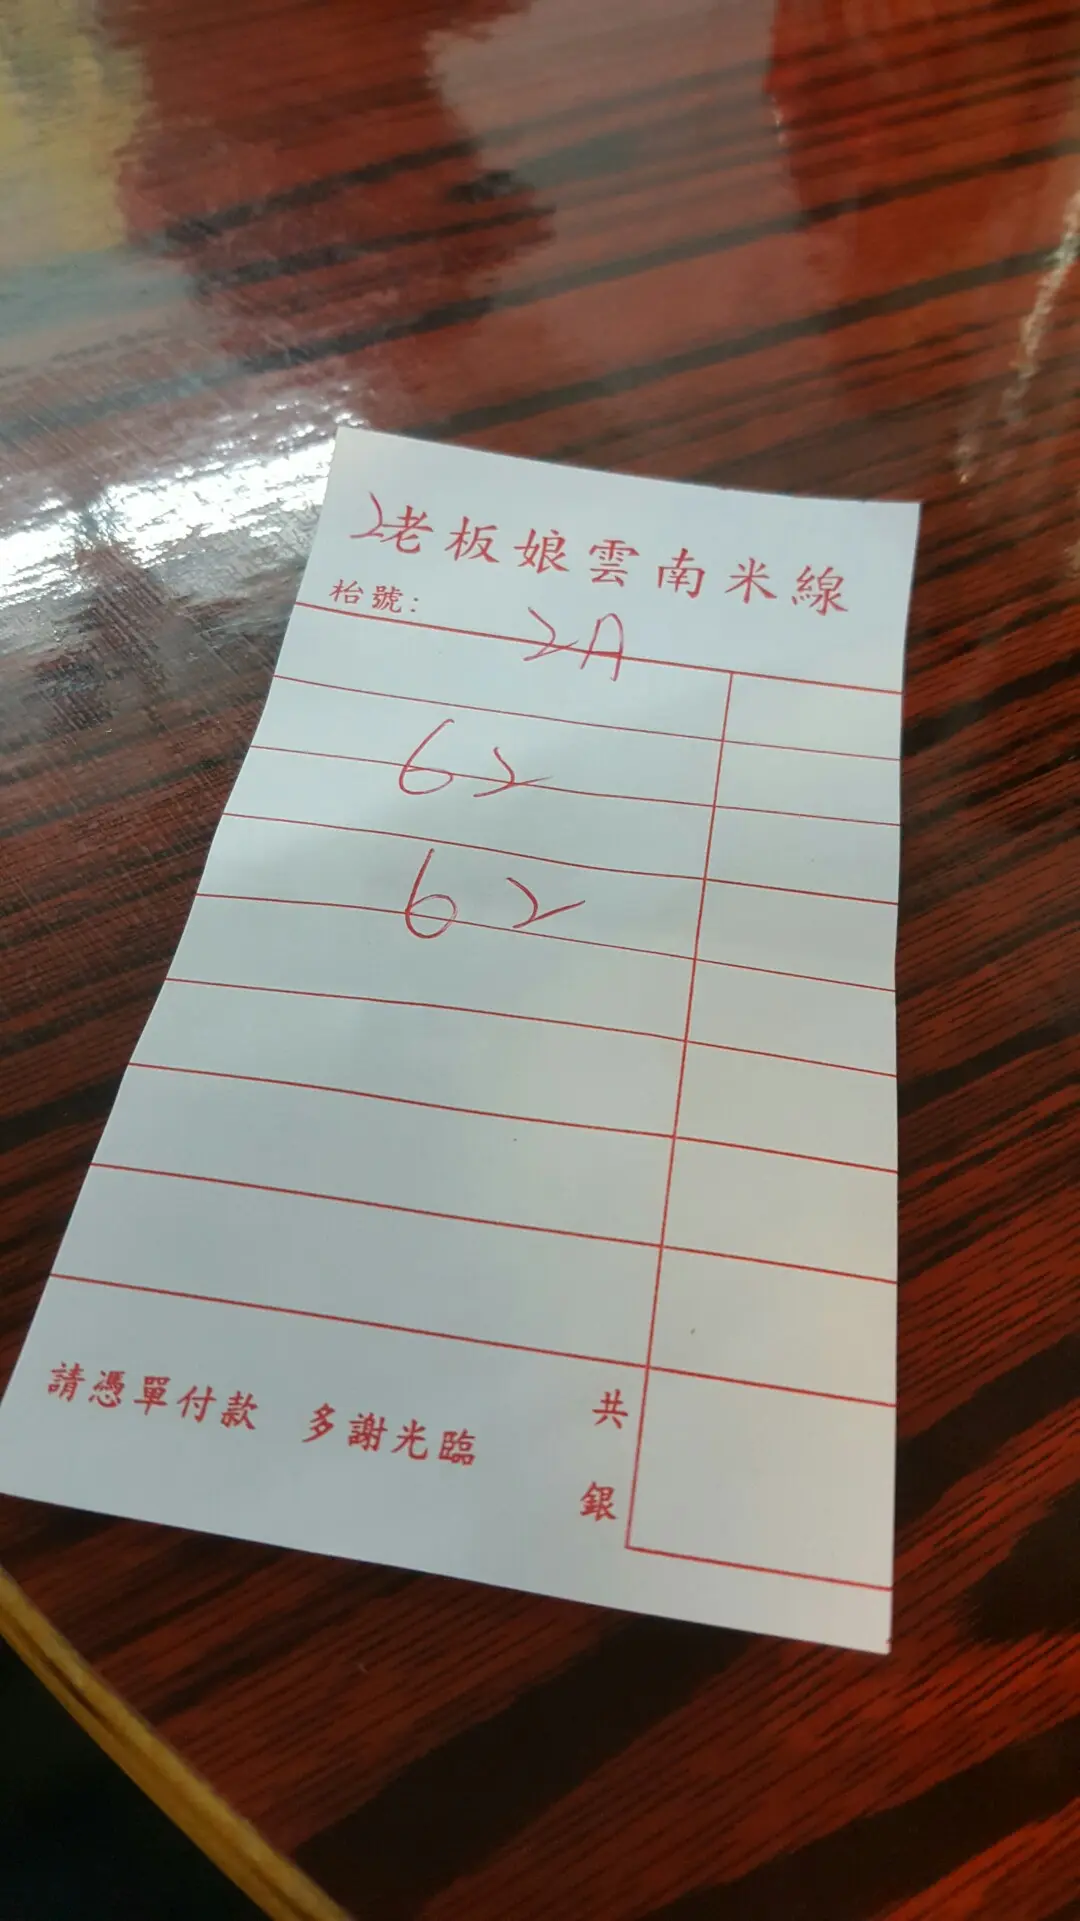 2老板娘雲南米線
枱號： 2A
62
62
請憑單付款 多謝光臨
共
銀